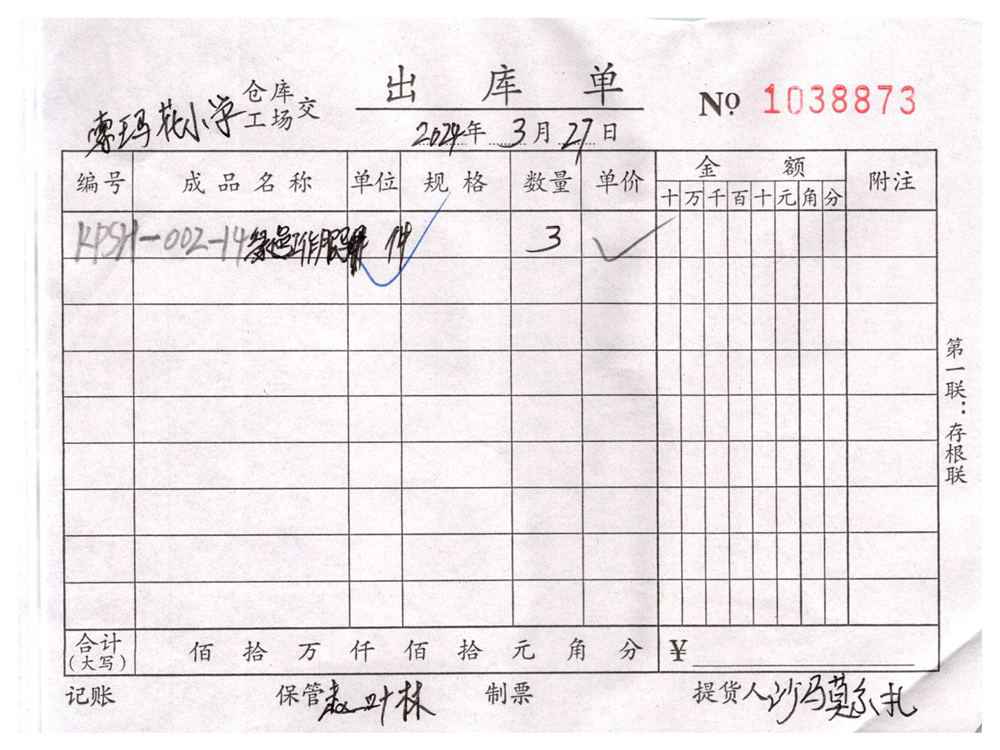 出库单
№ 1038873
索玛花小学 仓库 工场 交
2024年3月27日
编号 成品名称 单位 规格 数量 单价 金额 附注
十万千百十元角分
KPSH-002-14 工作服 件 3
第一联：存根联
合计(大写) 佰 拾 万 仟 佰 拾 元 角 分 ¥
记账 保管 赵叶林 制票 提货人 沙马莫尔扎